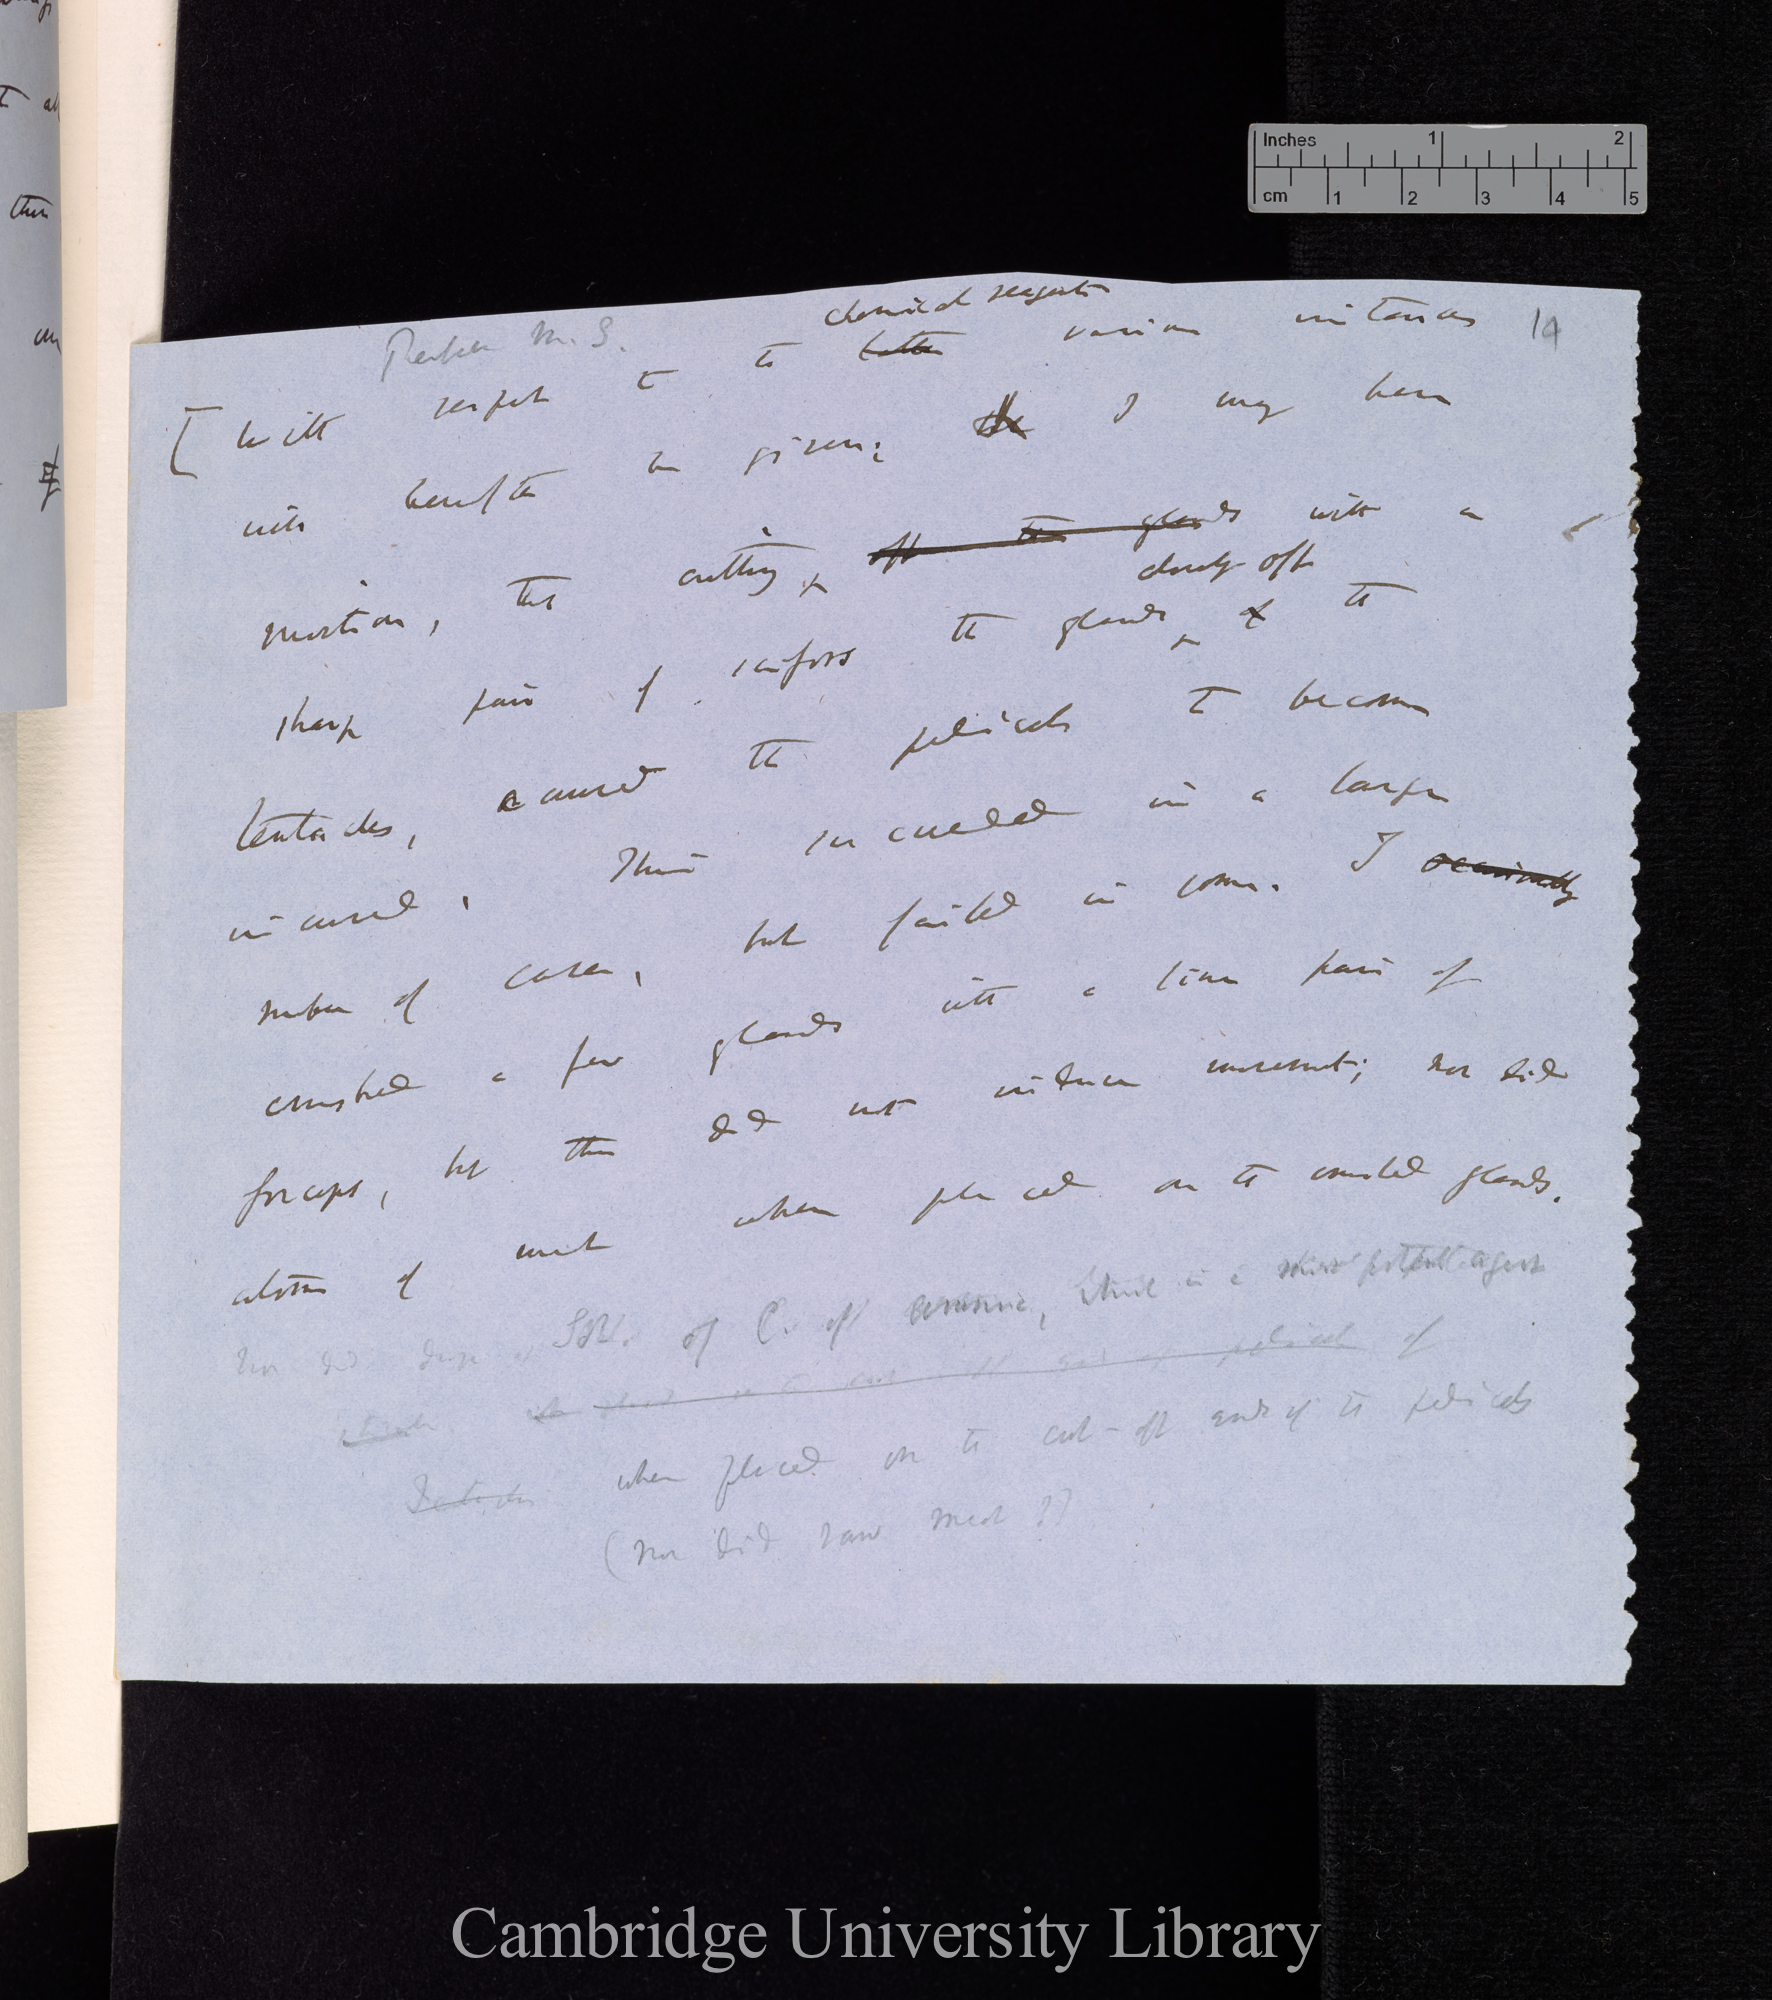 Inches 1 2
cm 1 2 3 4 5
M.S.
19
chemical reagents
[With respect to to various irritants
will hereafter be given; the I may here
mention, that cutting off the glands with a
closely off
sharp pair of scissors the glands & the
tentacles, caused the pedicels to become
incurved, This succeeded in a large
number of cases, but failed in some. I occasionally
crushed a few glands with a fine pair of
forceps, but this did not induce movement; nor did
atoms of meat when placed on the crushed glands.
nor did drops of Sol. of C. of ammonia, which is a more potent agent
of
when placed on the cut-off ends of the pedicels
(nor did raw meat ??
all
Cambridge University Library